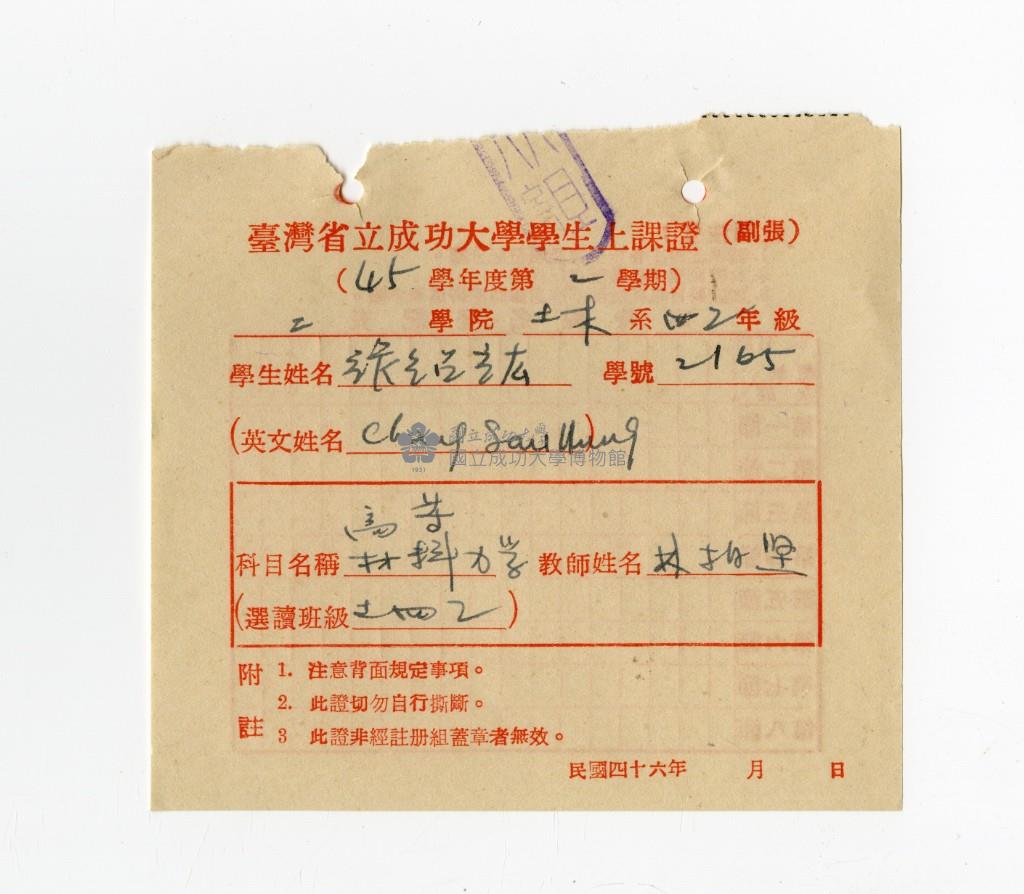 臺灣省立成功大學學生上課證（副張）
（45學年度第2學期）
工學院 土木系四乙年級
學生姓名 張紹宏 學號 2165
（英文姓名 Chang Sau Hung）
國立成功大學
國立成功大學博物館
1931
高等
科目名稱 材料力学 教師姓名 林柏堅
（選讀班級 土四乙）
附註
1. 注意背面規定事項。
2. 此證切勿自行撕斷。
3 此證非經註册組蓋章者無效。
民國四十六年 月 日